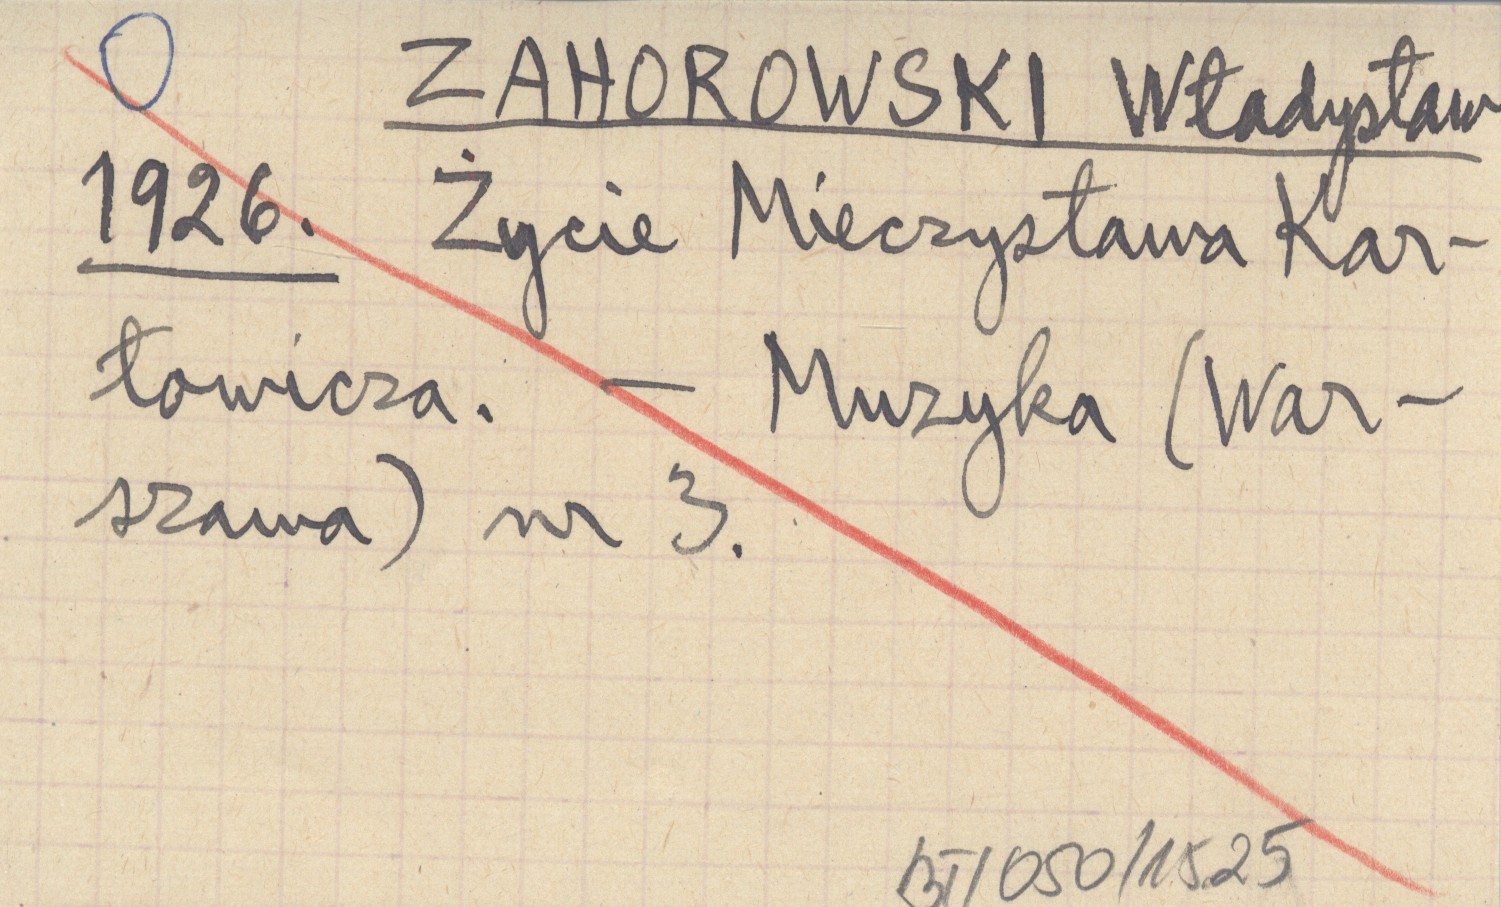 ZAHOROWSKI Władysław
1926. Życie Mieczysława Kar-
łowicza. — Muzyka (War-
szawa) nr 3.
BT/050/1525